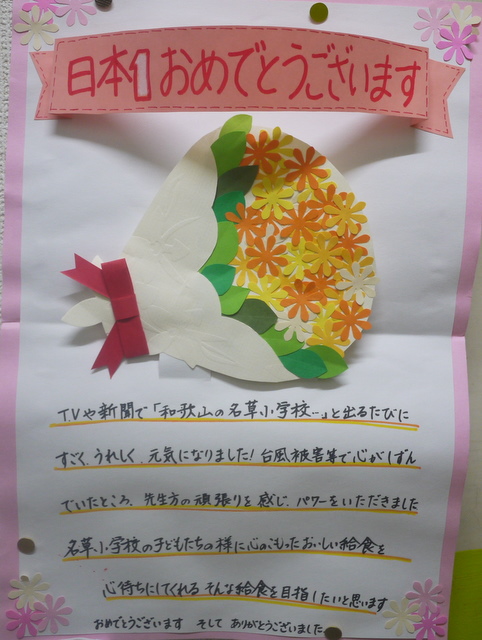 日本1おめでとうございます
TVや新聞で「和歌山の名草小学校…」と出るたびに
すごく、うれしく、元気になりました！台風被害等で心がしずん
でいたところ、先生方の頑張りを感じ、パワーをいただきました
名草小学校の子どもたちの様に心のこもったおいしい給食を
心待ちにしてくれる そんな給食を目指したいと思います
おめでとうございます そして ありがとうございました